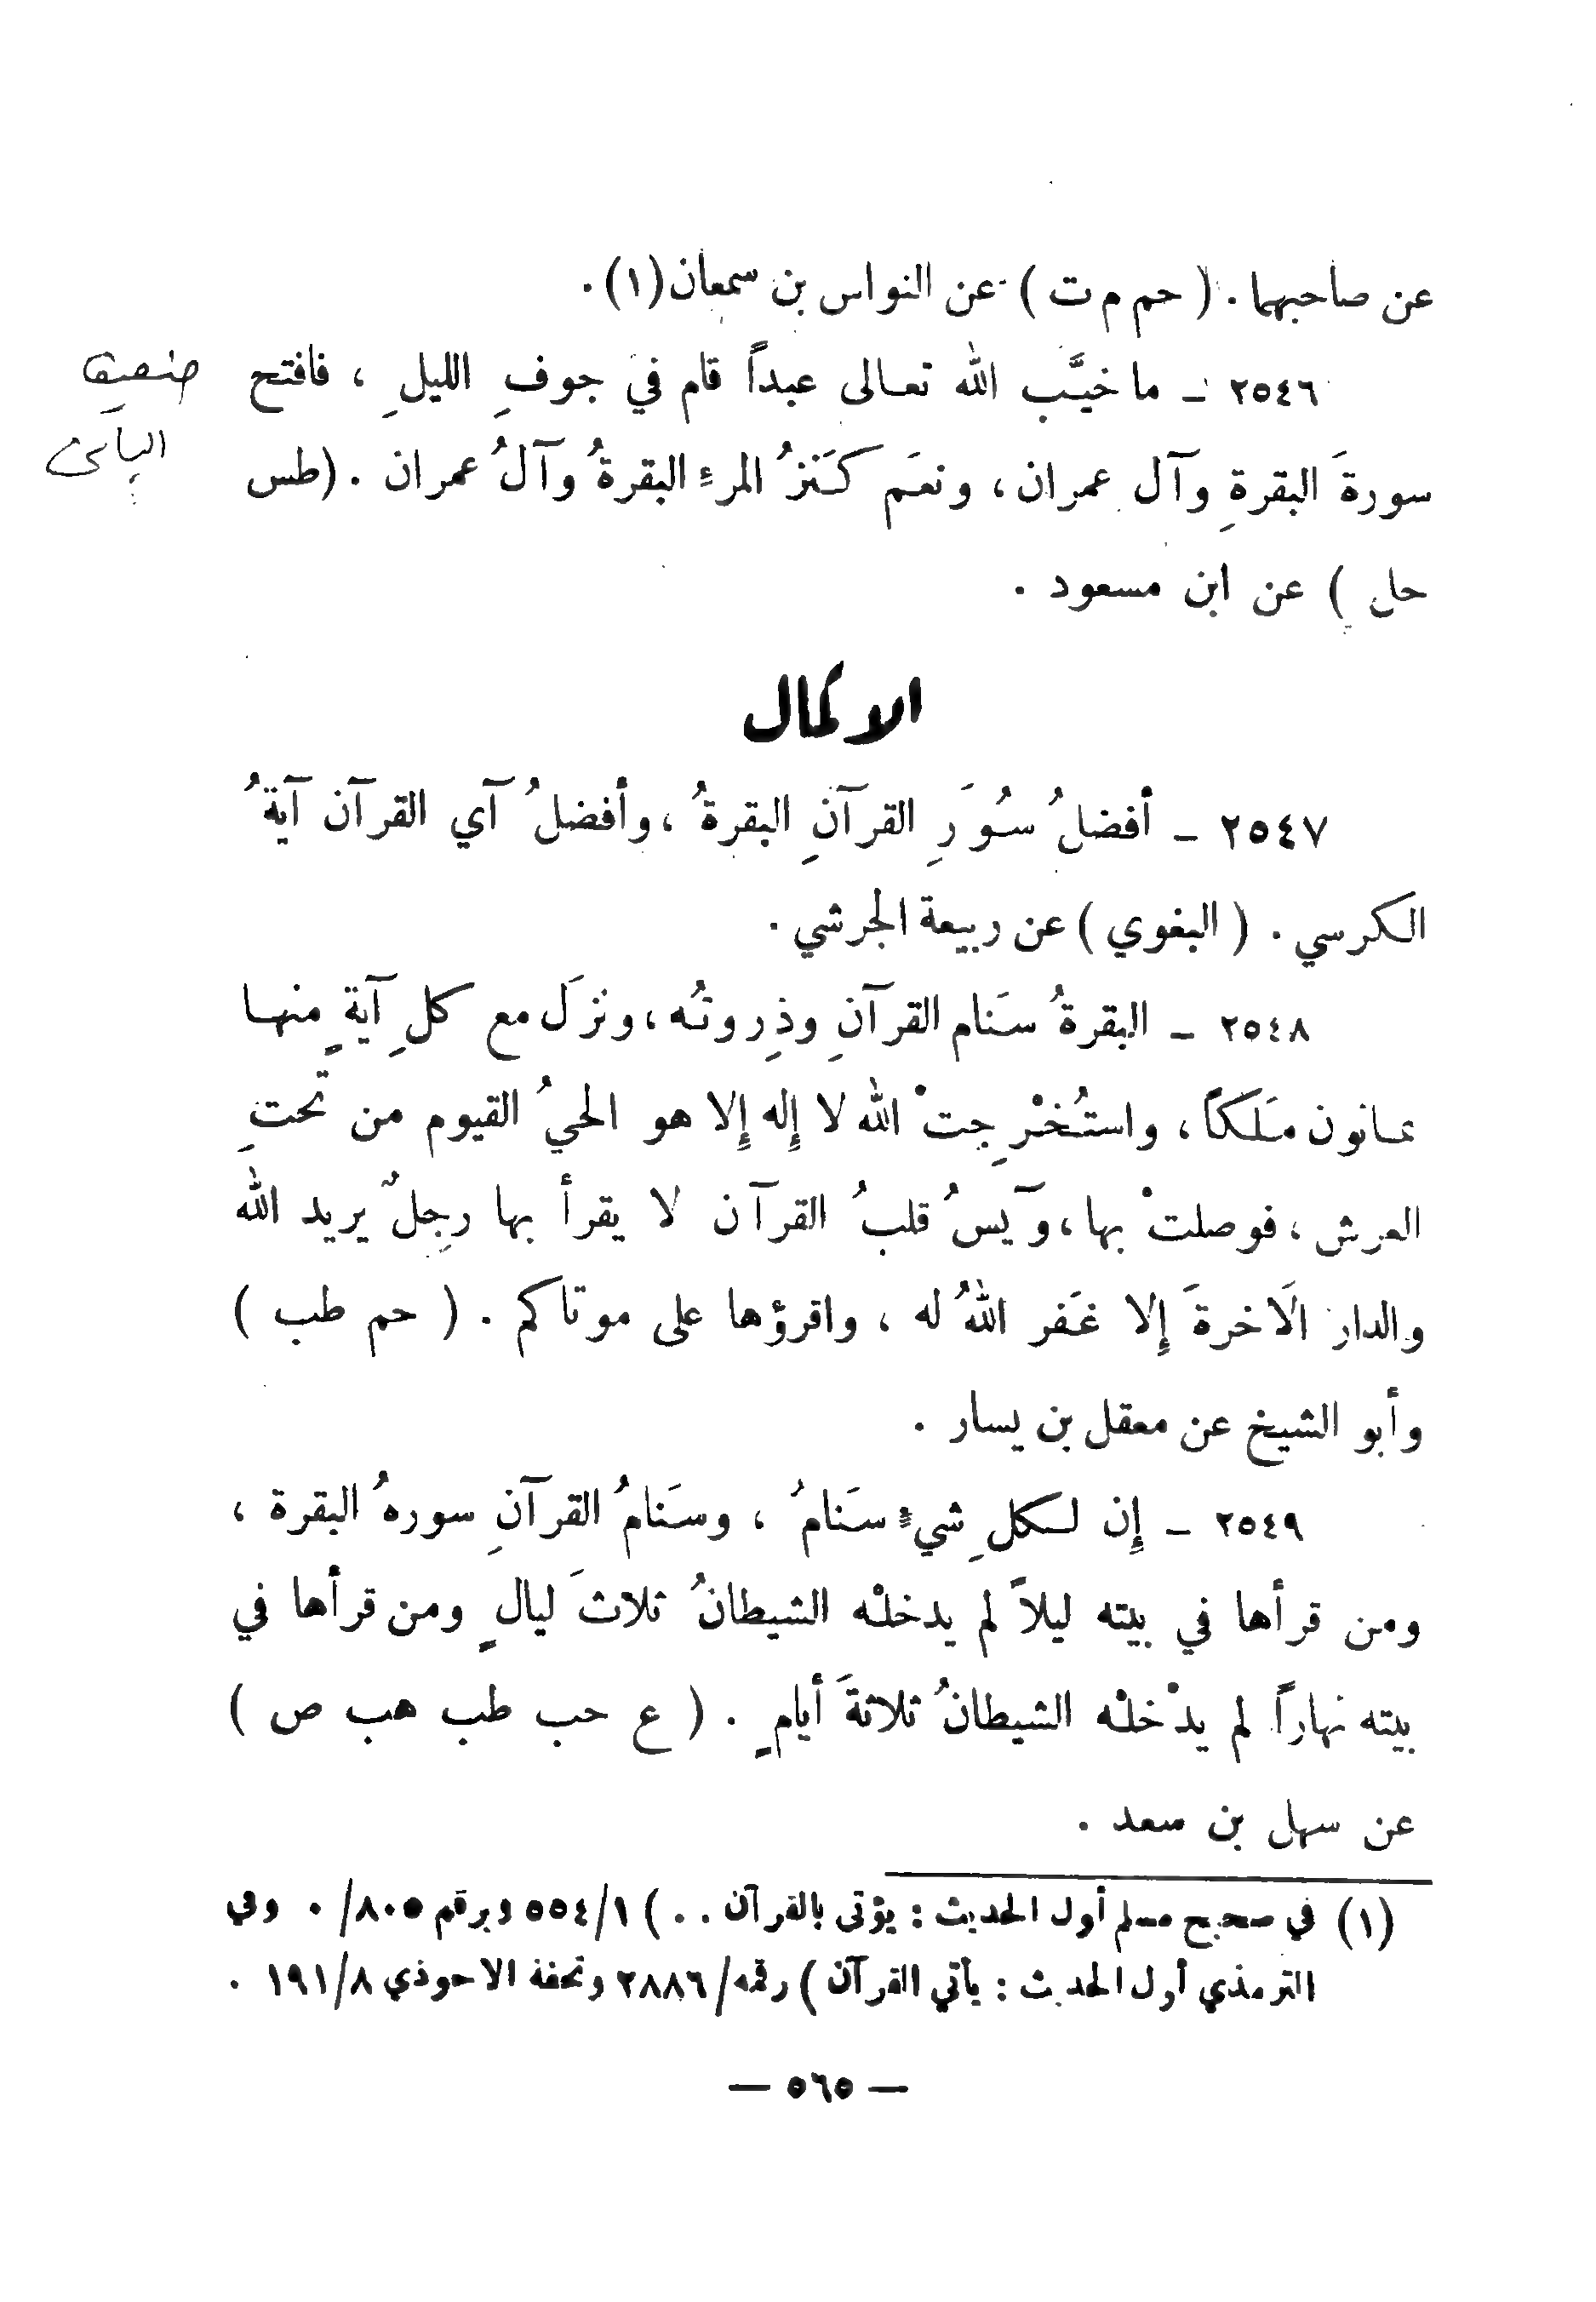 عن صاحبهما . ( حم م ت ) عن النواس بن سمعان(١) .
٢٥٤٦ ـ ما خيَّب الله تعالى عبداً قام في جوفِ الليلِ ، فافتح
ضعيف
سورةَ البقرةِ وآل عمران ، ونعَم كَنزُ المرءِ البقرةُ وآلُ عمران . (طس
حل ) عن ابن مسعود .
الاكمال
٢٥٤٧ ـ أفضلُ سُوَرِ القرآنِ البقرةُ ، وأفضلُ آي القرآن آيةُ
الكرسي . ( البغوي ) عن ربيعة الجرشي .
٢٥٤٨ ـ البقرةُ سَنام القرآنِ وذِروتُه ، ونزَل مع كلِ آيةٍ منها
ثمانون مَلَكاً ، واستُخْرِجتْ الله لا إِله إِلا هو الحيُ القيوم من تحتِ
العرش ، فوصلتْ بها ، وآيسُ قلبُ القرآن لا يقرأ بها رجلٌ يريد الله
والدار الآخرةَ إِلا غَفر اللهُ له ، واقرؤها على موتاكم . ( حم طب )
وأبو الشيخ عن معقل بن يسار .
٢٥٤٩ ـ إِن لكلِ شيءٍ سَنامُ ، وسَنامُ القرآنِ سورهُ البقرة ،
ومن قرأها في بيته ليلاً لم يدخلْه الشيطانُ ثلاثَ ليالٍ ومن قرأها في
بيته نهاراً لم يدْخلْه الشيطانُ ثلاثةَ أيامٍ . ( ع حب طب هب ص )
عن سهل بن سعد .
(١) في صحيح مسلم أول الحديث : يؤتى بالقرآن . . ) ٥٥٤/١ وبرقم ٨٠٥/ . وفي
الترمذي أول الحديث : يأتي القرآن ) رقمه/ ٢٨٨٦ وتحفة الاحوذي ١٩١/٨ .
— ٥٦٥ —